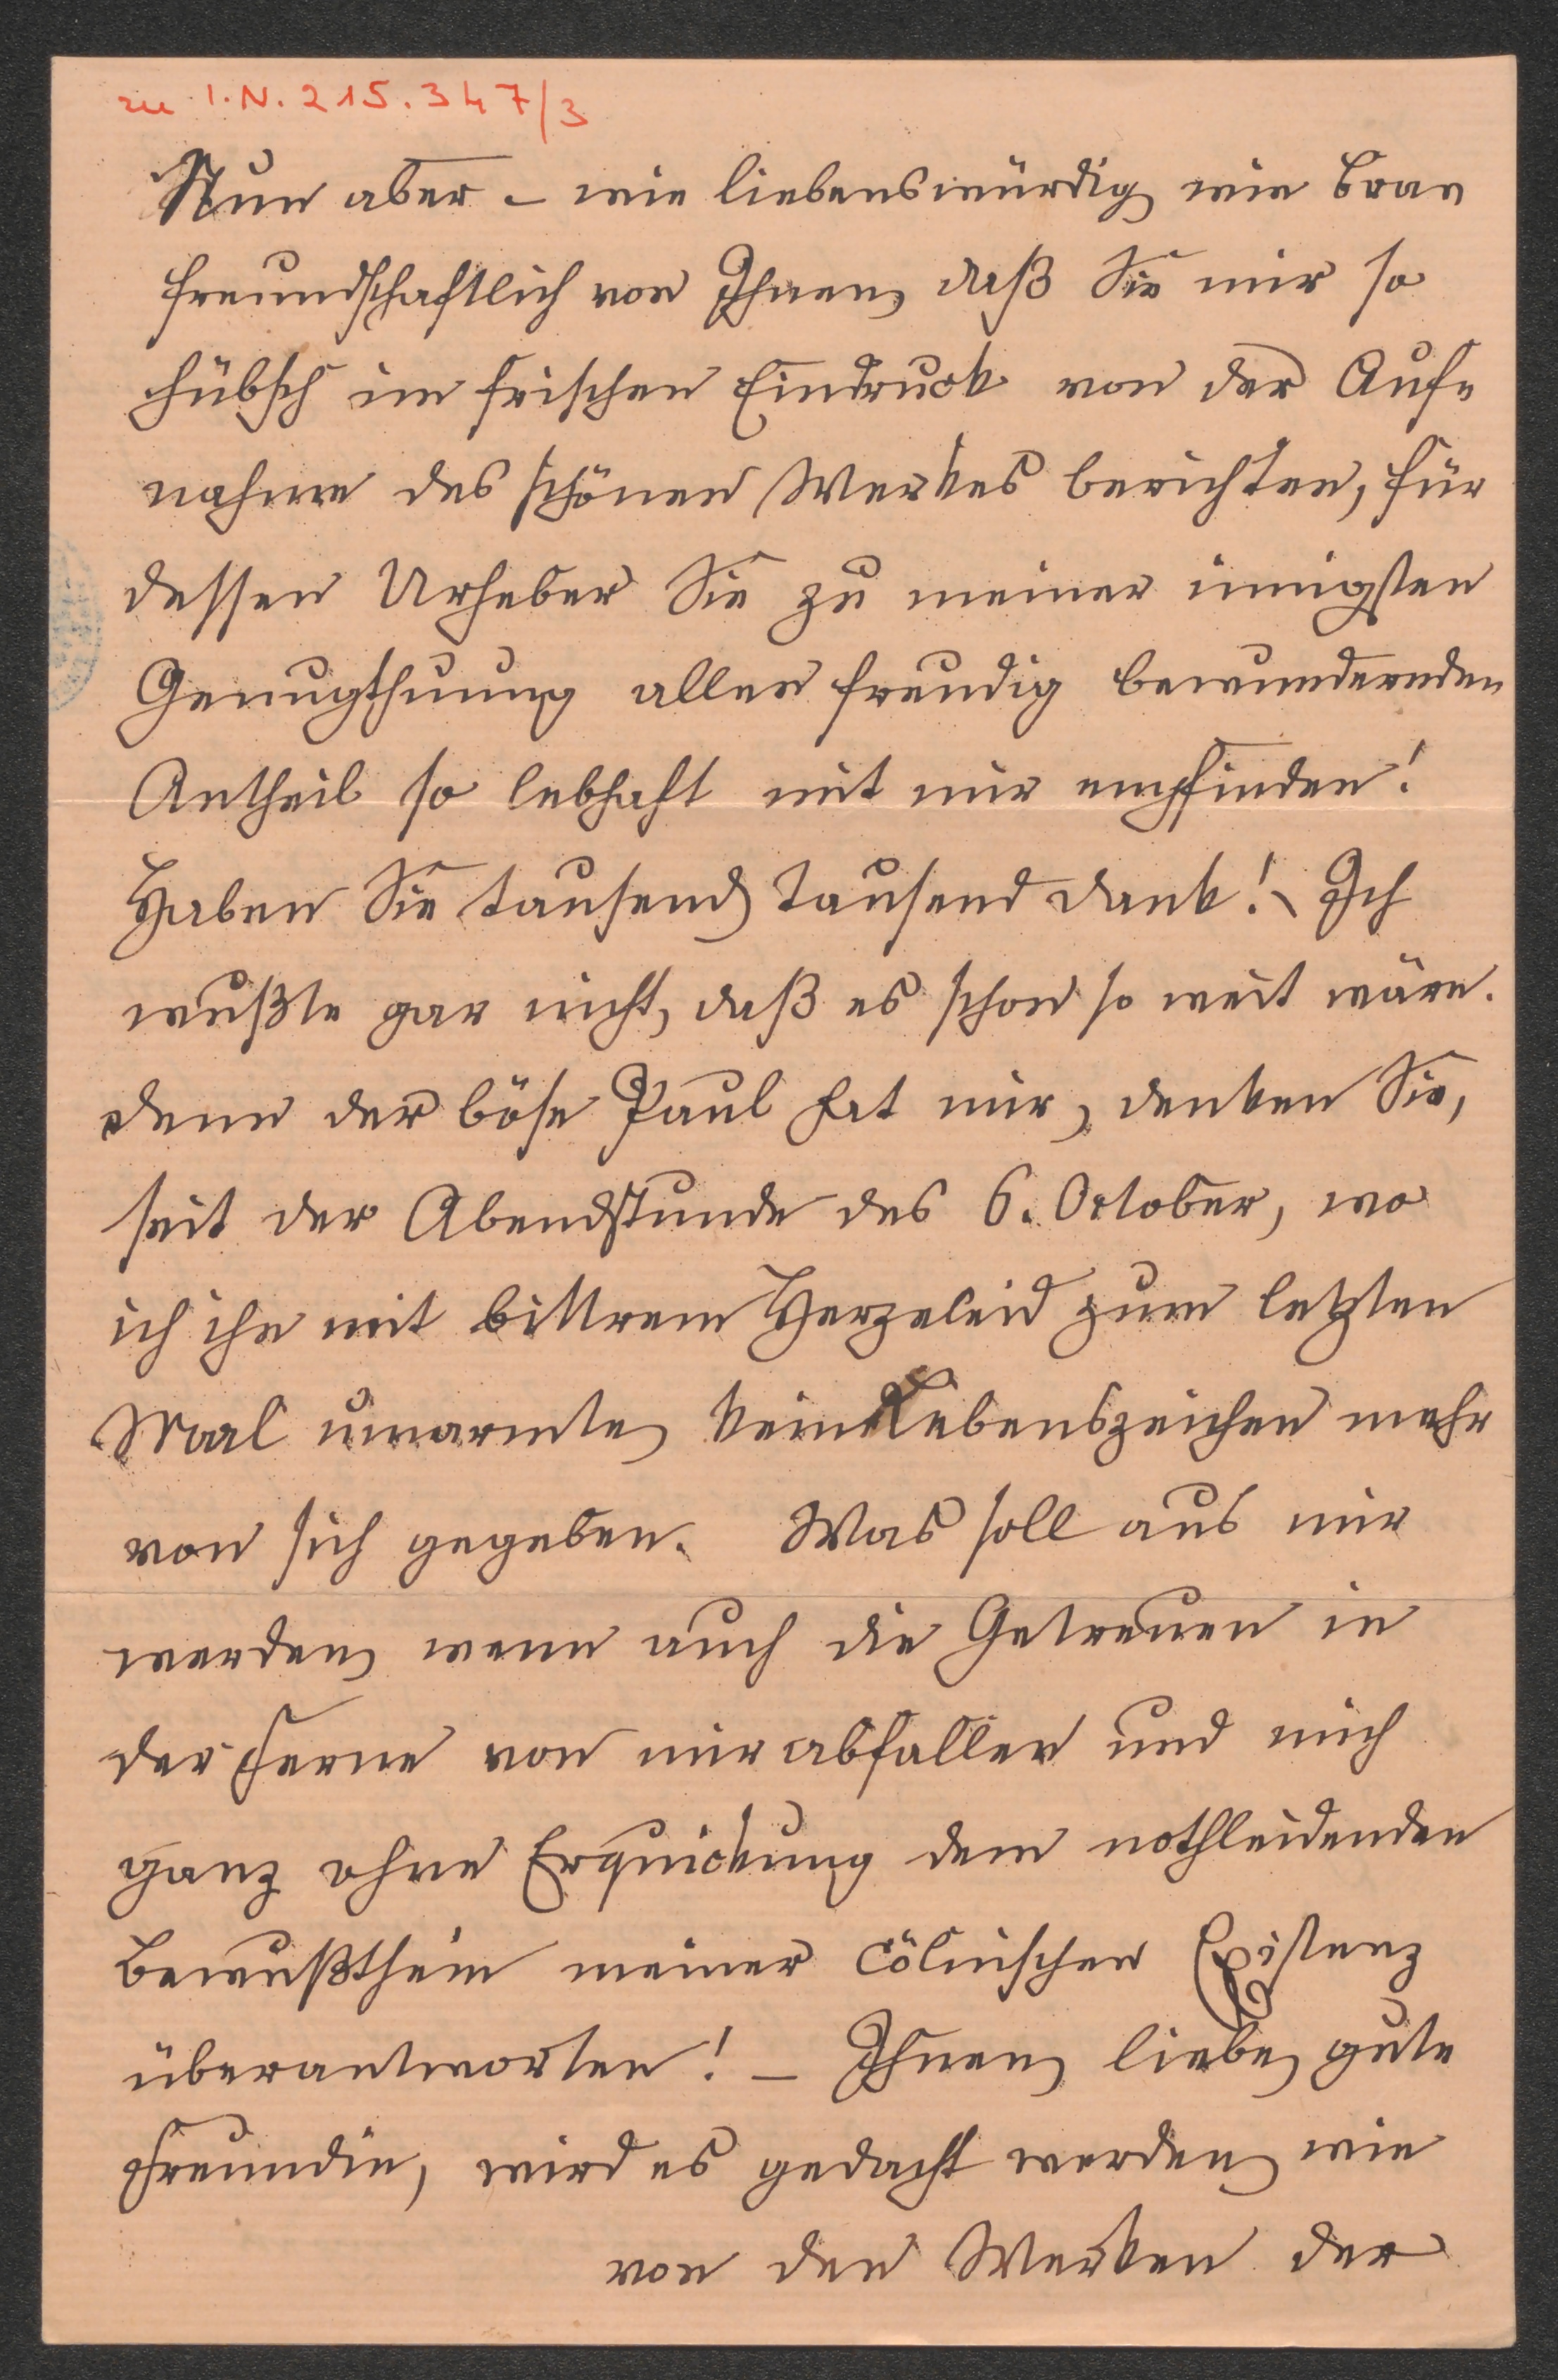 zu I.N. 215.347/3
Nun aber – wie liebenswürdig wie brav
freundschaftlich von Ihnen, daß Sie mir so
hübsch im frischen Eindruck von der Auf-
nahme des schönen Werkes berichten, für
dessen Urheber Sie zu meiner innigsten
Genugthuung allen freudig bewundernden
Antheil so lebhaft mit mir empfinden!
Haben Sie tausend, tausend Dank! Ich
wußte gar nicht, daß es schon so weit wäre.
denn der böse Paul hat mir, denken Sie,
seit der Abendstunde des 6. October, wo
ich ihn mit bittrem Herzeleid zum letzten
Maal umarmte, kein Lebenszeichen mehr
von sich gegeben. Was soll aus mir
werden, wenn auch die Getreuen in
der Ferne von mir abfallen und mich
ganz ohne Erquickung dem nothleidenden
Bewußtsein meiner cölnischen Existenz
überantworten! – Ihnen, liebe, gute
Freundin, wird es gedacht werden, wie
von den Werken der